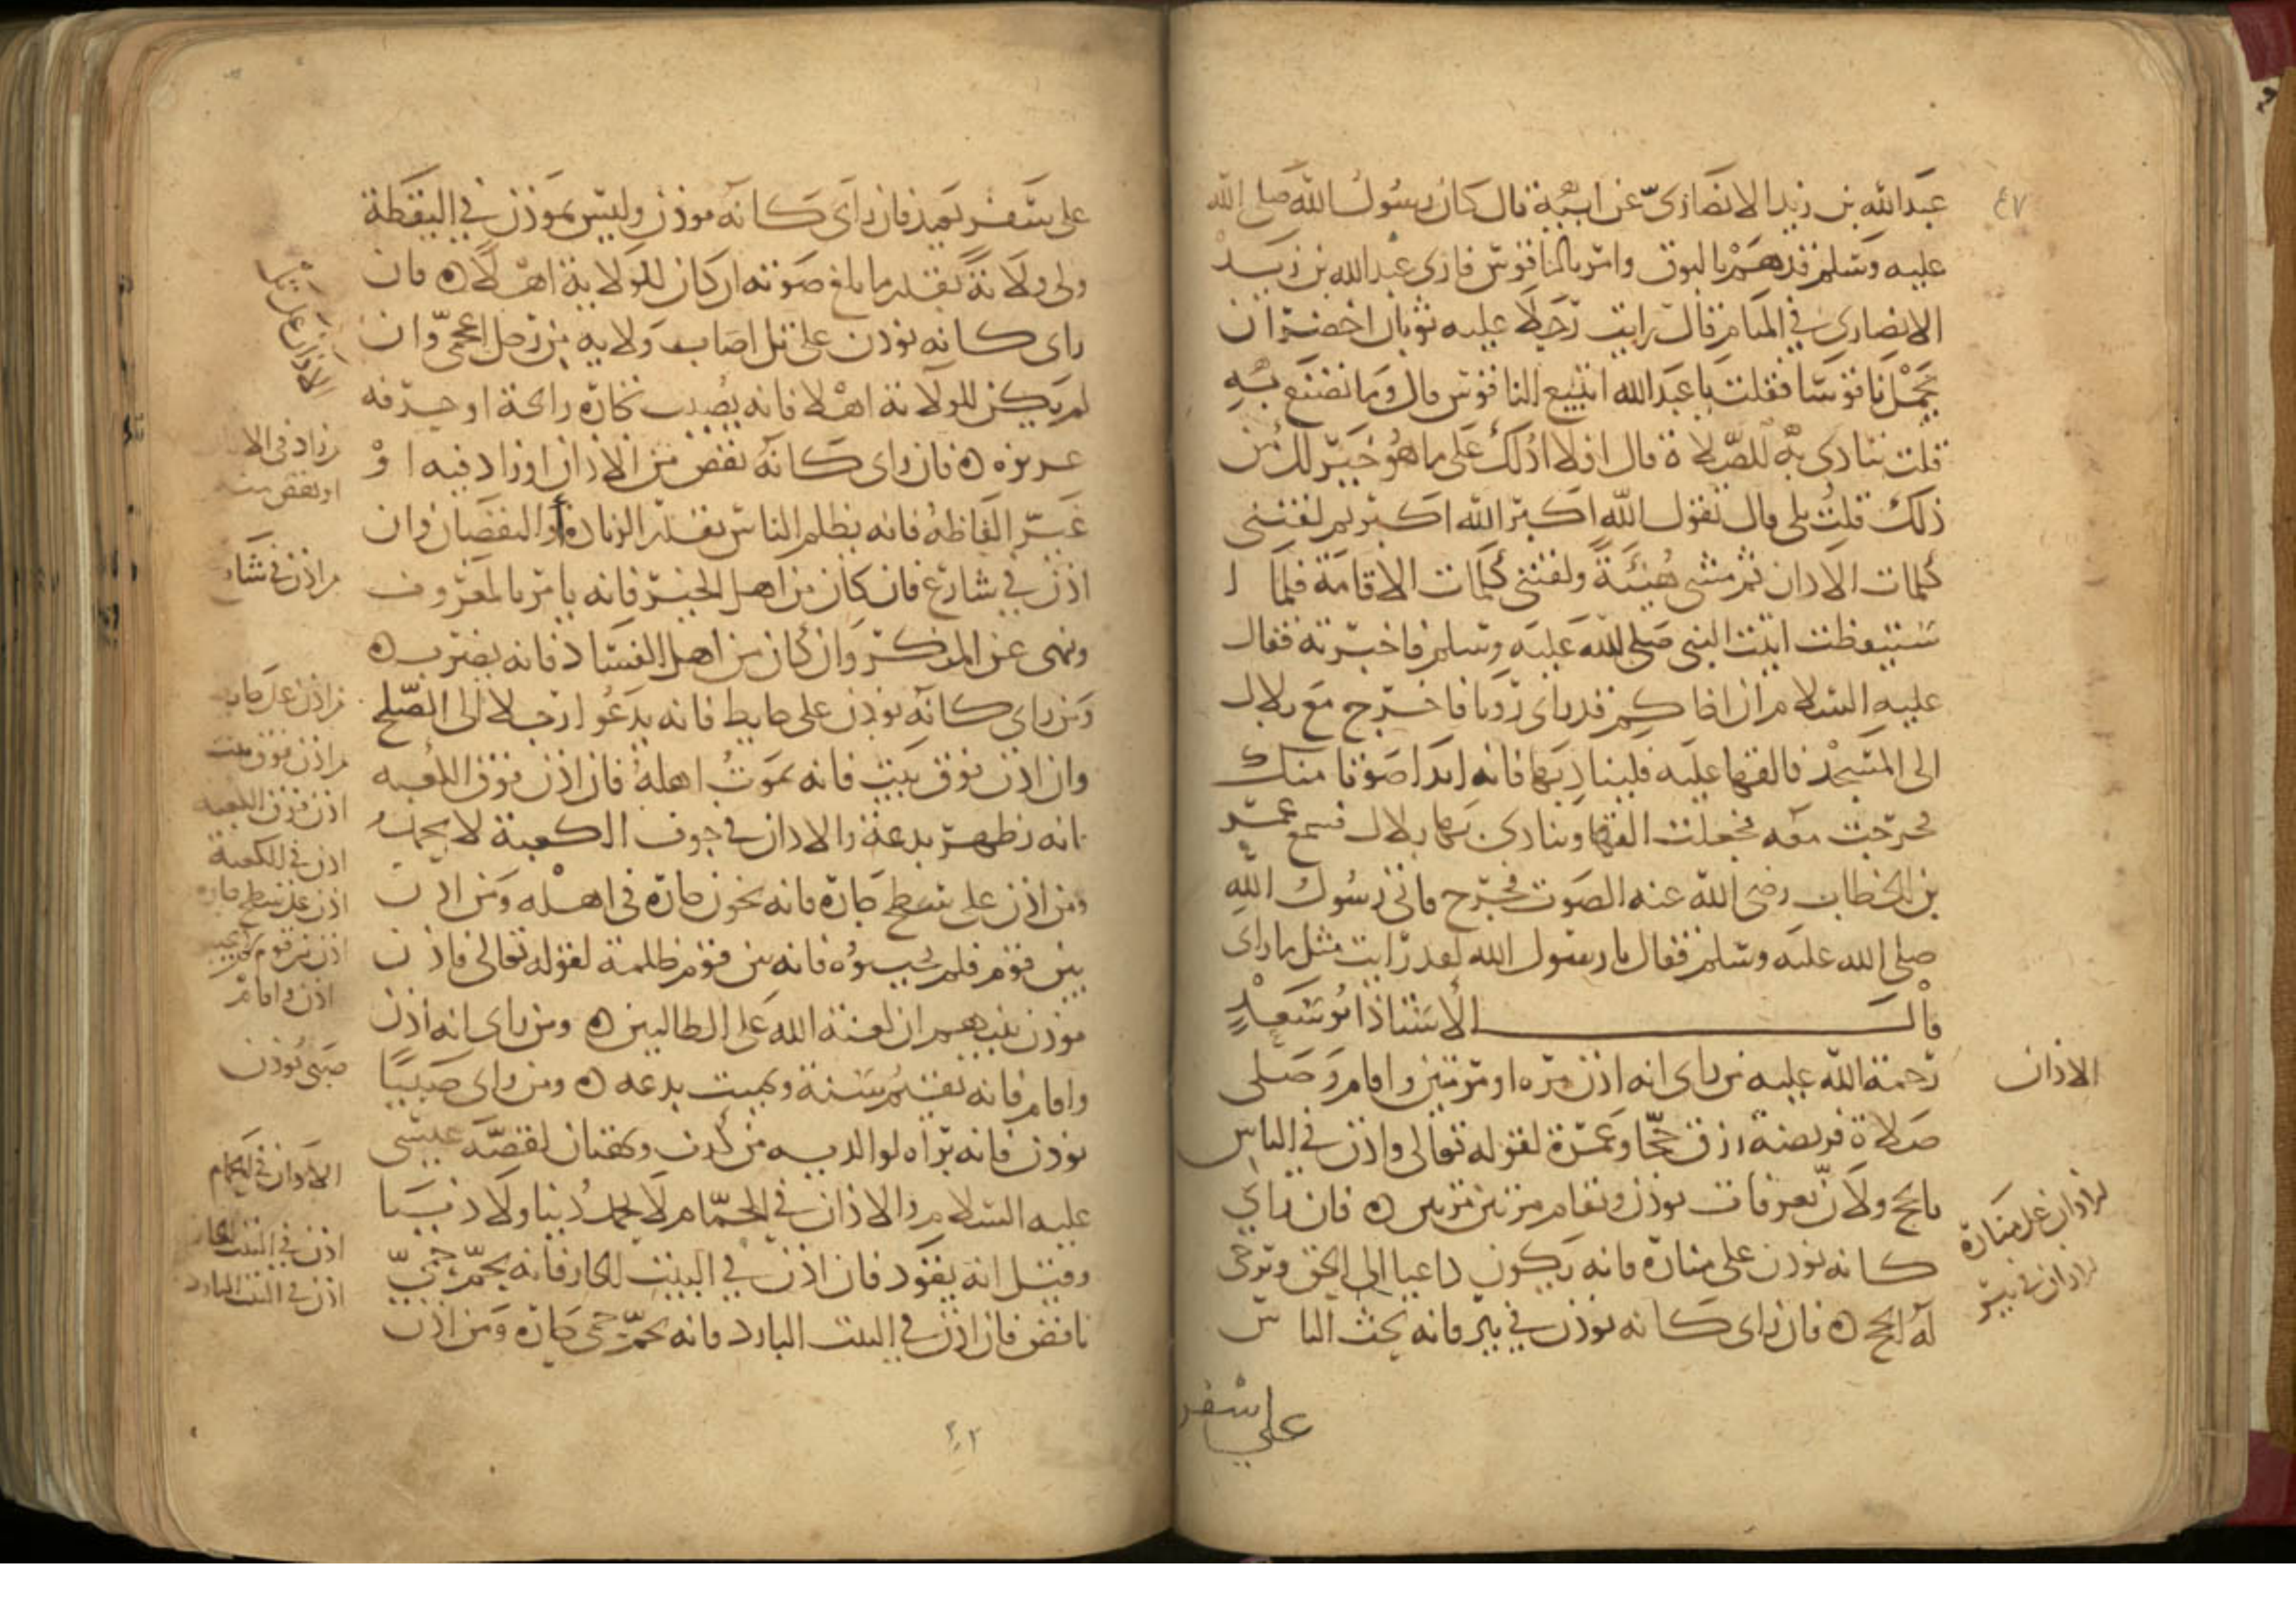 ٤٧
عبدالله بن زيد الانصاري عن ابيه قال كان رسول الله صلى الله
عليه وسلم قد هم بالبوق وامر بالناقوس فارى عبد الله بن زيد
الانصاري في المنام قال رايت رجلا عليه ثوبان اخضران
يحمل ناقوسا فقلت يا عبد الله اتبيع الناقوس قال وما تصنع به
قلت ننادي به للصلاة قال افلا ادلك على ما هو خير لك من
ذلك قلت بلى قال تقول الله اكبر الله اكبر ثم لقنني
كلمات الاذان ثم مشى هنيئة ولقنني كلمات الاقامة فلما ا
ستيقظت اتيت النبي صلى الله عليه وسلم فاخبرته فقال
عليه السلام ان اخاكم قد راى رؤيا فاخرج مع بلال
الى المسجد فالقها عليه فليناد بها فانه اندا صوتا منك
فخرجت معه فجعلت القها وينادي بها بلال فسمع عمر
بن الخطاب رضي الله عنه الصوت فخرج فاتى رسول الله
صلى الله عليه وسلم فقال يا رسول الله لقد رايت مثل ما راى
قال الاستاذ ابو سعد
الاذان
رحمة الله عليه من راى انه اذن مره او مرتين واقام وصلى
صلاة فريضة رزق حجا وعمرة لقوله تعالى واذن في الناس
بالحج ولان بعرفات يوذن ويقام مرتين مرتين ه فان راي
كانه يوذن على منارة فانه يكون داعيا الى الحق ويرجى
له الحج ه فان راى كانه يوذن في بير فانه يحث الناس
على سفر
على سفر بعيد فان راى كانه موذن وليس بموذن في اليقظة
ولى ولاية بقدر ما بلغ صوته ان كان للولاية اهلا ه فان
راى كانه يوذن على تل اصاب ولاية من رجل اعجمي وان
لم يكن للولاية اهلا فانه يصيب تجارة رابحة او حرفه
عزيزه ه فان راى كانه نقص من الاذان او زاد فيه او
غير الفاظه فانه يظلم الناس بقدر الزيادة او النقصان وان
اذن في شارع فان كان من اهل الخير فانه يامر بالمعروف
وينهى عن المنكر وان كان من اهل الفساد فانه يضرب ه
ومن راى كانه يوذن على حايط فانه يدعوا رجلا الى الصلح
وان اذن فوق بيت فانه يموت اهله فان اذن فوق الكعبه
فانه يظهر بدعة والاذان في جوف الكعبة لا يحمد
ومن اذن على سطح جاره فانه يخون جاره في اهله ومن اذن
بين قوم فلم يجيبوه فانه بين قوم ظلمة لقوله تعالى فاذن
موذن بينهم ان لعنة الله على الظالمين ه ومن راى انه اذن
واقام فانه يقيم سنة ويميت بدعه ه ومن راى صبيا
يوذن فانه براه لوالديه من كذب وبهتان لقصة عيسى
عليه السلام والاذان في الحمام لا يحمد دنيا ولا دنيا
وقيل انه يقود فان اذن في البيت الحار فانه يحم حمى
نافض فان اذن في البيت البارد فانه يحم حمى حاره ومن اذن
من اذن في شارع
من اذن على حايط
من اذن فوق بيت
اذن فوق الكعبه
اذن في الكعبة
اذن على سطح جاره
اذن واقام
صبي يوذن
الاذان في الحمام
اذن في البيت الحار
اذن في البيت البارد